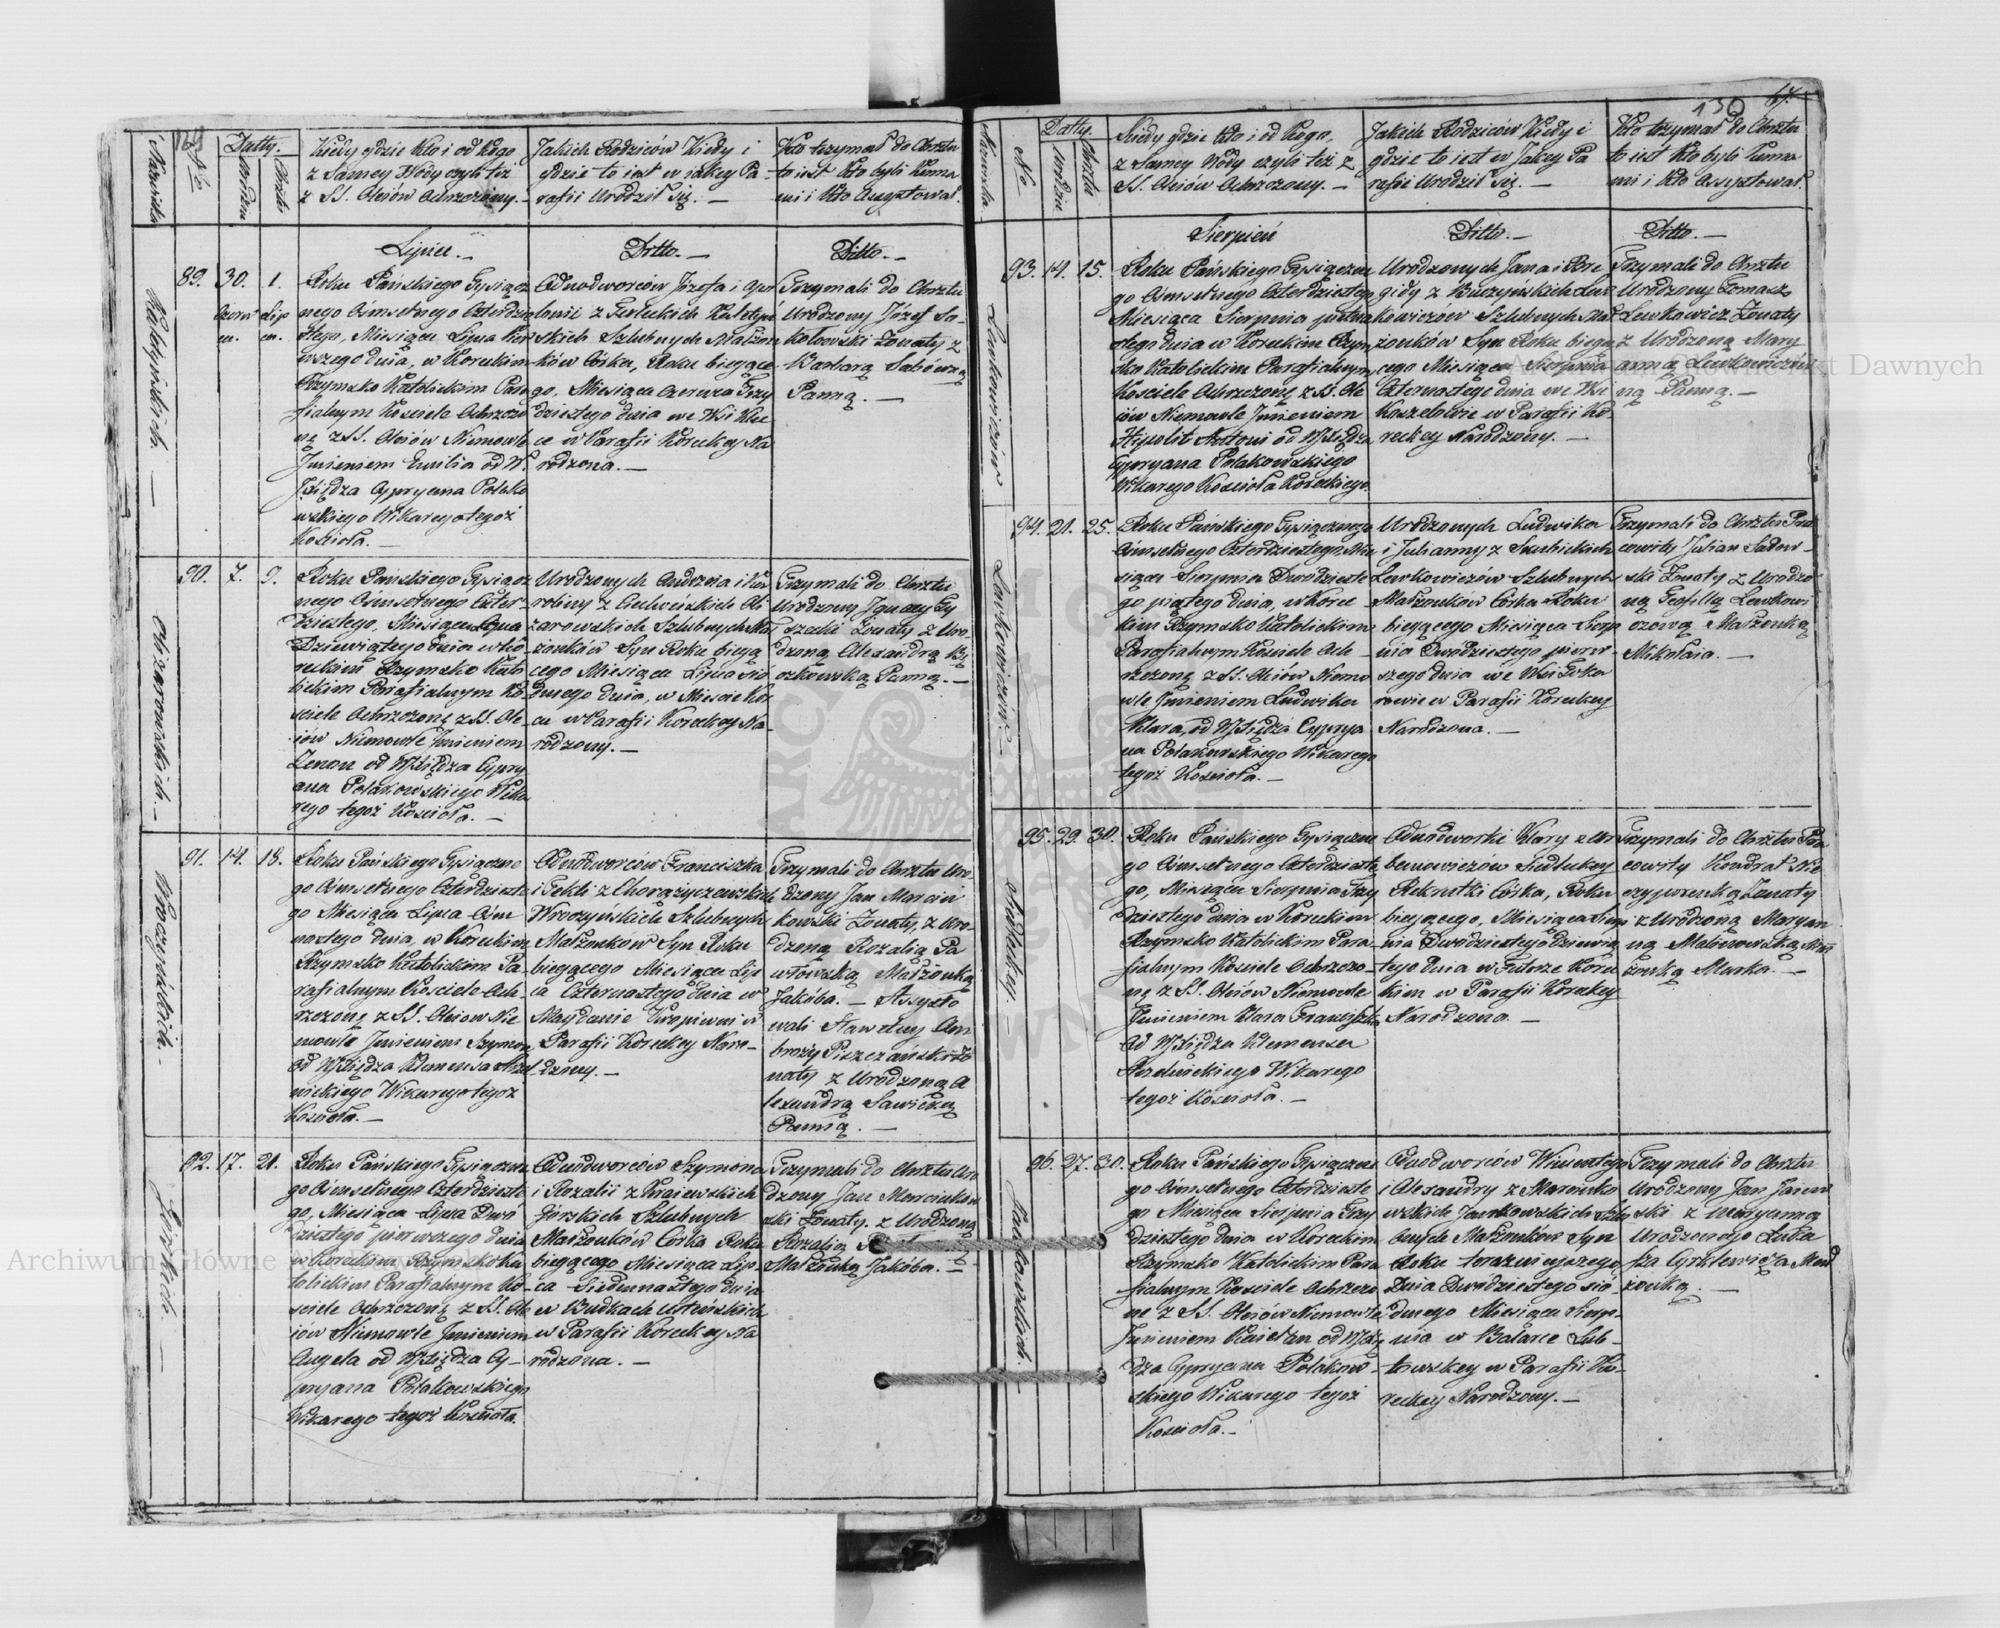 129
Nazwiska
No
Datty.
Urodzin
Chrztu
Kiedy gdzie kto i od kogo
z Samey Wody czyli też
z SS. Oleiów Ochrzczony. —
Jakich Rodziców Kiedy i
gdzie to iest w iakey Pa
rafii Urodził się. —
Kto trzymał do Chrztu
to iest kto byli Kuma
mi i kto Assystował.
Lipiec. —
Ditto. —
Ditto. —
89. 30. 1.
Czerw Lip
ca. ca.
Roku Pańskiego Tysiącz
nego Ośmsetnego Czterdzie
stego, Miesiąca Lipca Pier
wszego dnia, w Koreckim
Rzymsko Katolickim Para
fialnym Kościele Ochrzczo
ne z SS. Oleiów Niemowle
Imieniem Emilia od W.
Xiędza Cypryana Polako
wskiego Wikarego tegoż
Kościoła. —
Odnodworców Józefa i Apo
lonii z
skich Szlubnych Małżon
ków Córka, Roku bieżące
go, Miesiąca Czerwca Trzy
dziestego dnia we Wsi
w Parafii Koreckey Na
rodzona. —
Trzymali do Chrztu
Urodzony Józef So-
kołowski Żonaty z
Barbarą
Panną. —
90. 7. 9.
Olizarowskich. —
Roku Pańskiego Tysiącz
nego Ośmsetnego Czter-
dziestego, Miesiąca Lipca
Dziewiątego dnia w Ko-
reckim Rzymsko Kato
lickim Parafialnym Ko
ściele Ochrzczone z SS. Ole
iów Niemowle Imieniem
Zenon od W Xiędza Cypry
ana Polakowskiego Wika
rego tegoż Kościoła. —
Urodzonych Andrzeia i Ka
roliny z Oli
zarowskich Szlubnych Ma
żonków Syn Roku bieżą
cego Miesiąca Lipca Sió
dmego dnia, w Mieście Kor
cu w Parafii Koreckey Na-
rodzony. —
Trzymali do Chrztu
Urodzony Ignacy Ty
szecki Żonaty z Uro-
dzoną Alexandrą
Panną. —
91. 14. 18.
Wroczyńskich. —
Roku Pańskiego Tysiączne
go Ośmsetnego Czterdzieste
go Miesiąca Lipca Ośm
nastego dnia, w Koreckim
Rzymsko Katolickim Pa
rafialnym Kościele Och-
rzczone z SS. Oleiow Nie
mowle Imieniem Szymon
od W Xiędza Klemensa
Wikarego tegoż
Kościoła. —
Odnodworców Franciszka
i Tekli z Chorążyczewskich
Wroczyńskich Szlubnych
Małżonków Syn Roku
bieżącego Miesiąca Lip
ca Czternastego dnia w
Majdanie Kropiwni w
Parafii Koreckey Naro-
dzony. —
Trzymali do Chrztu Uro
dzony Jan Marcin
kowski Żonaty, z Uro
dzoną Rozalią Pa
włowską Małżonką
Jakóba. — Assysto
wali Sławetny Am
broży Piszczański Żo
naty z Urodzoną A
lexandrą Sawicką
Panną. —
92. 17. 21.
Górskich. —
Roku Pańskiego Tysiączne
go Ośmsetnego Czterdzieste
go, Miesiąca Lipca Dwó
dziestego pierwszego dnia
w Koreckim Rzymsko Ka
tolickim Parafialnym Ko
ściele Ochrzczone z SS. Ole
iów Niemowle Imieniem
Angela od W Xiędza Cy-
pryana Polakowskiego
Wikarego tegoż Kościoła.
Odnodworców Szymona
i Rozalii z Kraiewskich
Górskich Szlubnych
Małżonków Córka Roku
bieżącego Miesiąca Lip-
ca Siedmnastego dnia
w Budkach
w Parafii Koreckey Na
rodzona. —
Trzymali do Chrztu Uro
dzony Jan Marcinkow
ski Żonaty z Urodzoną
Rozalią
Małżonką Jakóba. —
130
67.
Nazwiska.
No
Datty.
Urodzin
Chrztu
Kiedy gdzie kto i od kogo,
z Samey Wody czyli też z
SS. Oleiów Ochrzczony. —
Jakich Rodziców Kiedy i
gdzie to iest w Jakey Pa
rafii Urodził się. —
Kto trzymał do Chrztu
to iest kto byli Kuma
mi i kto Assystował.
Sierpień
Ditto. —
Ditto. —
93. 14. 15.
Lewkowiczów
Roku Pańskiego Tysiączne
go Ośmsetnego Czterdziestego
Miesiąca Sierpnia piętna
stego dnia w Koreckim Rzym
sko Katolickim Parafialnym
Kościele Ochrzczone z SS. Ole
iów Niemowle Imieniem
Hipolit Antoni od W Xiędza
Cypryana Polakowskiego
Wikarego Kościoła Koreckiego.
Urodzonych Jana i Bry
gidy z Buczyńskich Lew
kowiczów Szlubnych Mał
żonków Syn Roku bieżą
cego Miesiąca Sierpnia
Czternastego dnia we Wsi
Koszelowie w Parafii Ko
reckey Narodzony. —
Trzymali do Chrztu
Urodzony Tomasz
Lewkowicz Żonaty
z Urodzoną Mary
anną Lewkowiczów
ną Panną. —
94. 21. 25.
Lewkowiczów. —
Roku Pańskiego Tysiącznego
Ośmsetnego Czterdziestego Mie
siąca Sierpnia Dwódzieste
go piątego dnia, w Korec
kim Rzymsko Katolickim
Parafialnym Kościele Och-
rzczone z SS. Oleiów Niemo
wle Imieniem Ludwika
Klara, od W Xiędza Cyprya
na Polakowskiego Wikarego
tegoż Kościoła. —
Urodzonych Ludwika
i Julianny z
Lewkowiczów Szlubnych
Małżonków Córka Roku
bieżącego Miesiąca Sierp
nia Dwódziestego pierw-
szego dnia we Wsi
w Parafii Koreckey
Narodzona. —
Trzymali do Chrztu Pra
cowity Julian Sadow-
ski Żonaty z Urodzo
ną Teofillą Lewkowi
czową Małżonką
Mikołaia. —
95. 29. 30.
Siedleckey. —
Roku Pańskiego Tysiączne
go Ośmsetnego Czterdzieste
go, Miesiąca Sierpnia Trzy
dziestego dnia w Koreckim
Rzymsko Katolickim Para-
fialnym Kościele Ochrzczo-
ne z SS. Oleiów Niemowle
Imieniem Klara Franciszka
od W Xiędza Klemensa
Wikarego
tegoż Kościoła. —
Odnodworki Klary z Ur
banowiczów Siedleckey
Rekrutki Córka, Roku
bieżącego, Miesiąca Sierp
nia Dwódziestego dziewią
tego dnia w Futorze Korec
kim w Parafii Koreckey
Narodzona. —
Trzymali do Chrztu Pra
cowity Kondrat Nie
czyporenko Żonaty
z Urodzoną Maryan
ną Malinowską Mał
żonką Marka. —
96. 27. 30.
Jankowskich. —
Roku Pańskiego Tysiączne
go Ośmsetnego Czterdzieste
go Miesiąca Sierpnia Trzy
dziestego dnia w Koreckim
Rzymsko Katolickim Para
fialnym Kościele Ochrzczo
ne z SS. Oleiów Niemowle
Imieniem od W Xię
dza Cypryana Polakow-
skiego Wikarego tegoż
Kościoła. —
Odnodworców Wincentego
i Alexandry z Marcinko
wskich Jankowskich Szlu
bnych Małżonków Syn
Roku teraznieyszego
Dnia Dwódziestego sió-
dmego Miesiąca Sierp-
nia w Balarce Lub-
towskey w Parafii Ko-
reckey Narodzony. —
Trzymali do Chrztu
Urodzony Jan
ski z Maryanną
Urodzonego Łuka
sza Mał
żonką. —
Archiwum Główne Akt Dawnych
Archiwum Główne Akt Dawnych